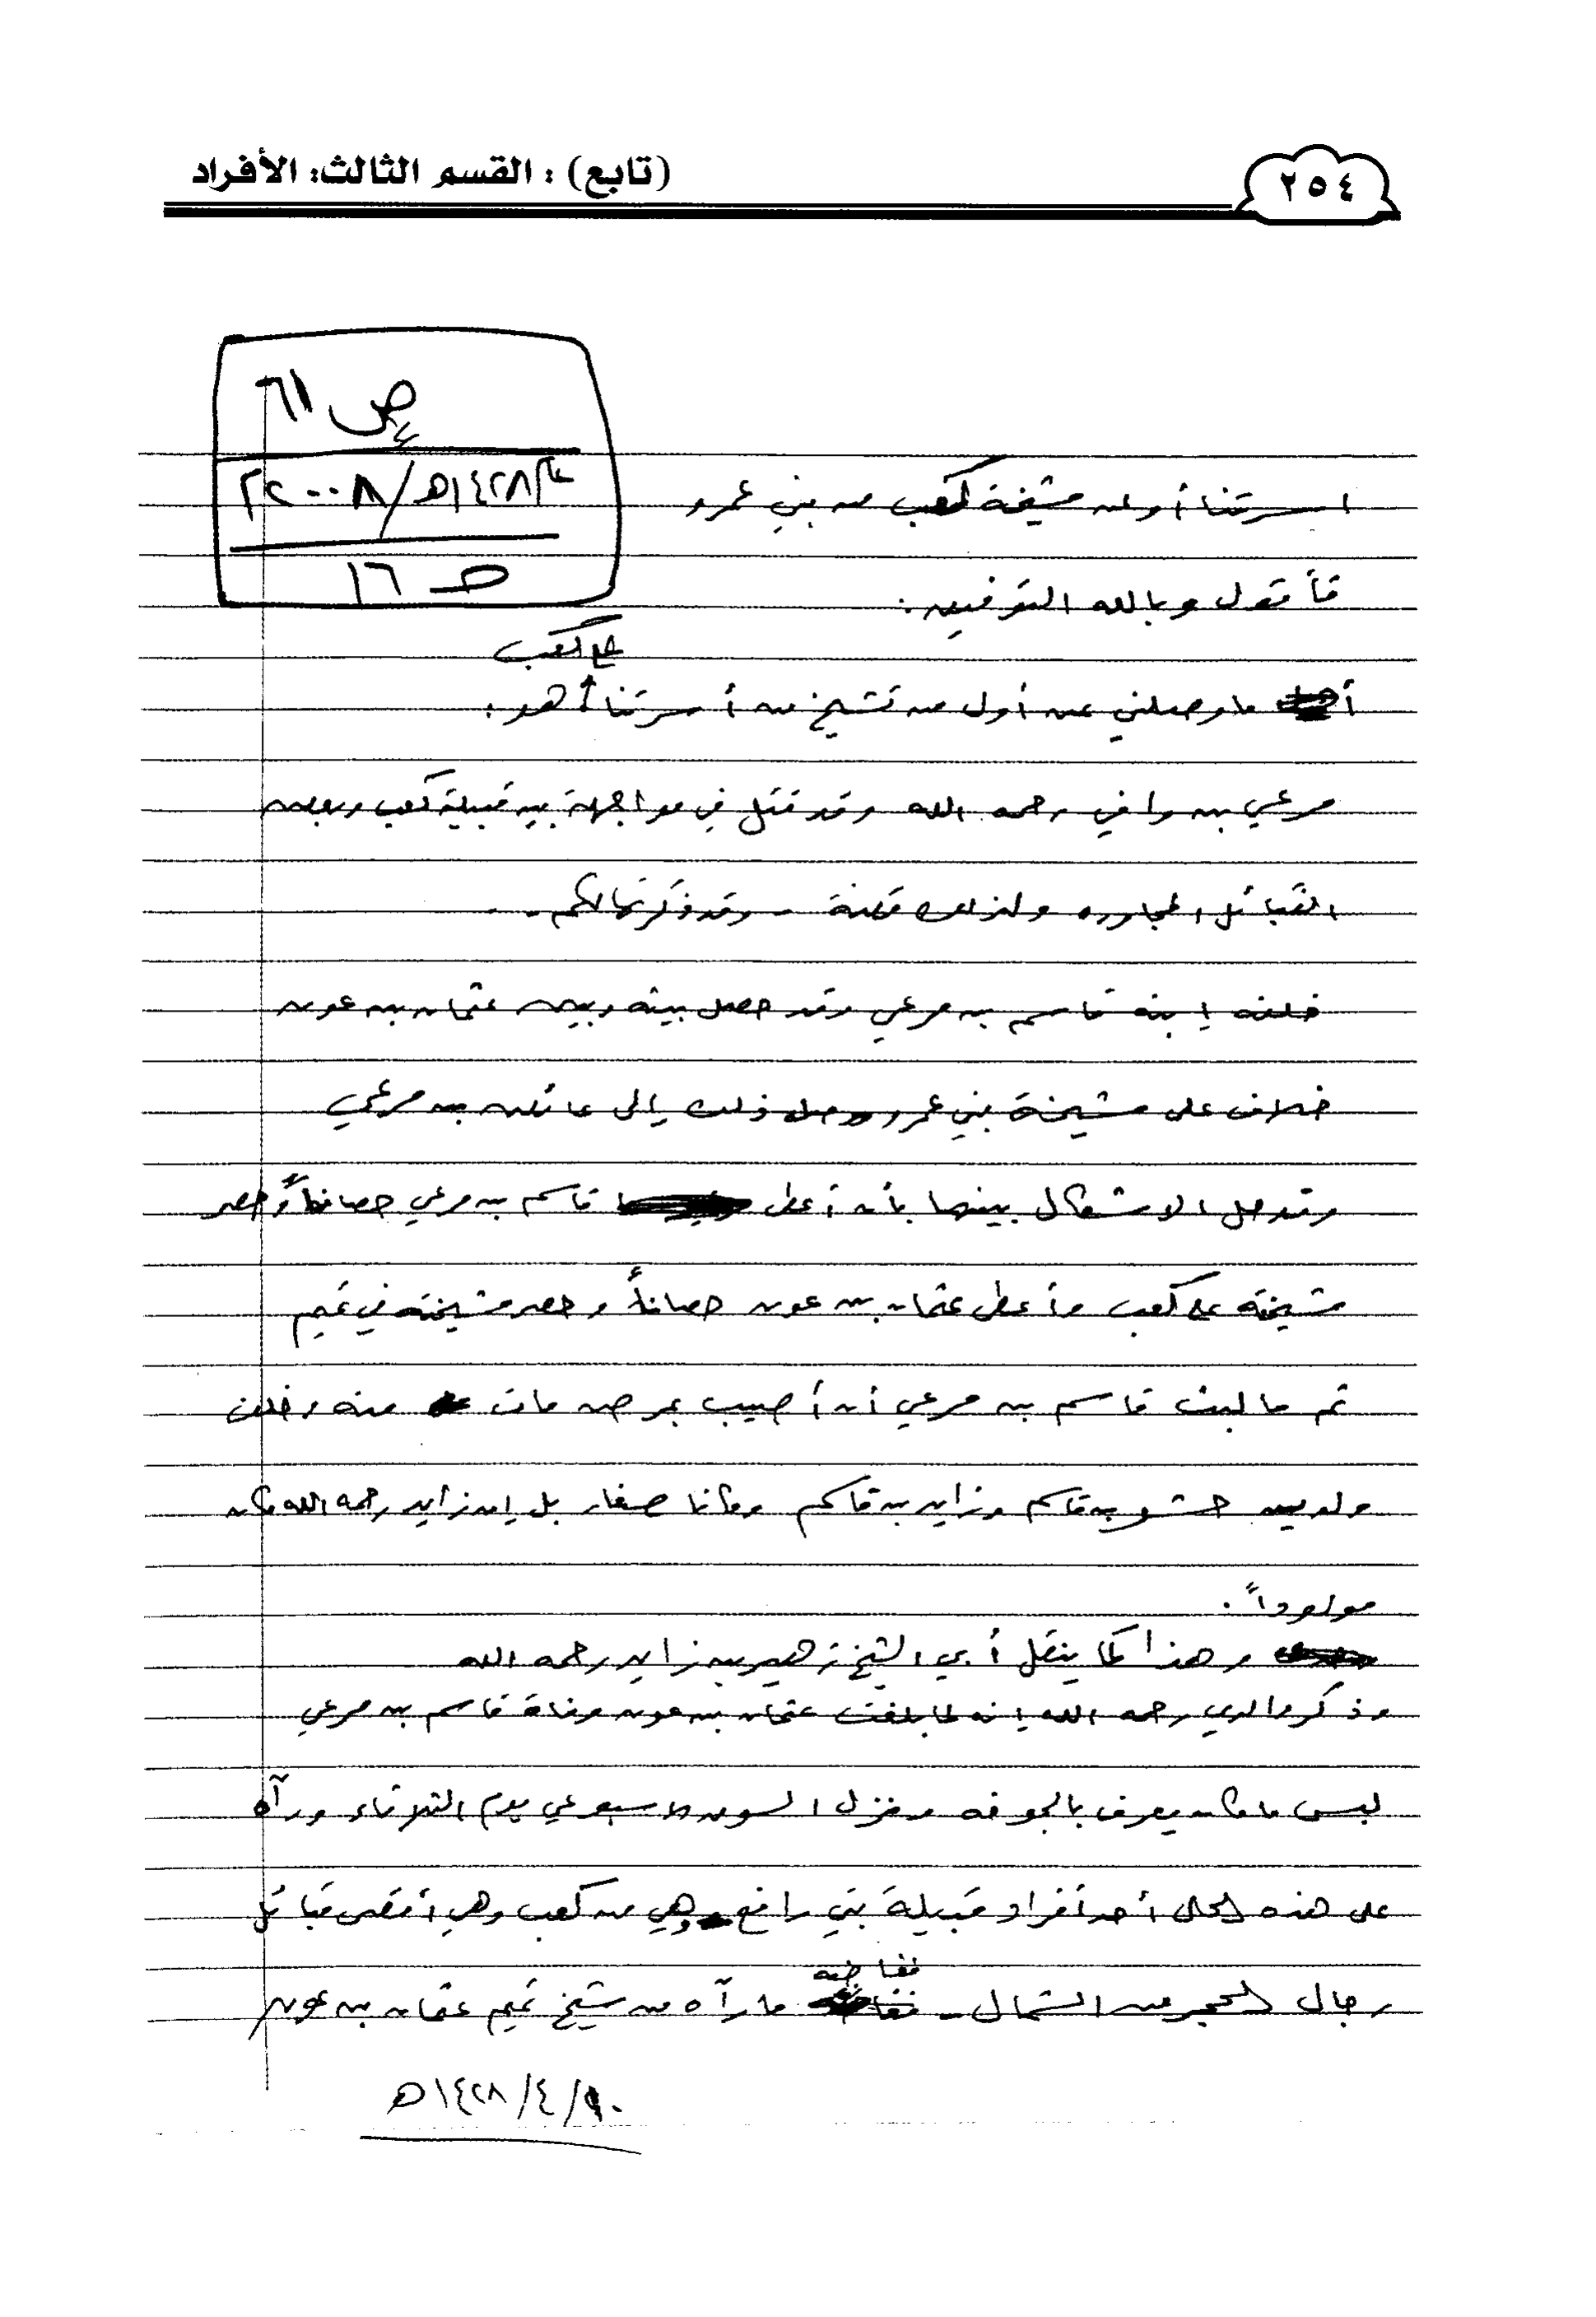 (تابع) : القسم الثالث: الأفراد
٢٥٤
ص ٦١
١٤٢٨هـ/٢٠٠٨م
ص ١٦
اسرتنا أو عن مشيخة كعب من بني عمرو
فأقول وبالله التوفيق:
على كعب
ما وصلني عن أول من تشيخ من أسرتنا هو:
مرعي بن رافع رحمه الله وقد قتل في مواجهة بين قبيلة كعب وبعض
القبائل المجاوره ولذلك قصة - وقد ذكرتها لكم -
خلفه إبنه قاسم بن مرعي وقد حصل بينه وبين عثمان بن عون
خلاف على مشيخة بني عمرو وصل ذلك إلى عائض بن مرعي
وقد حل الاشكال بينهما بأن أعطى قاسم بن مرعي حصاناً وحصر
مشيخته على كعب وأعطى عثمان بن عون حصاناً وحصر مشيخته في تميم
ثم ما لبث قاسم بن مرعي أن أصيب بمرض مات منه وخلف
ولدين حشو بن قاسم وزايد بن قاسم وكانا صغار بل إن زايد رحمه الله كان
مولوداً.
وهذا كما ينقل أبي الشيخ زهير بن زايد رحمه الله
وذكر والدي رحمه الله إنه لما بلغت عثمان بن عون وفاة قاسم بن مرعي
لبس ما كان يعرف بالجوخه ونزل السوق الاسبوعي يوم الثلاثاء ورآه
على هذه الحال أحد أفراد قبيلة بني رافع وهي من كعب وهي أقصى قبائل
رجال الحجر من الشمال - فغاضه ما رآه من شيخ تميم عثمان بن عون
١٠/٤/١٤٢٨هـ